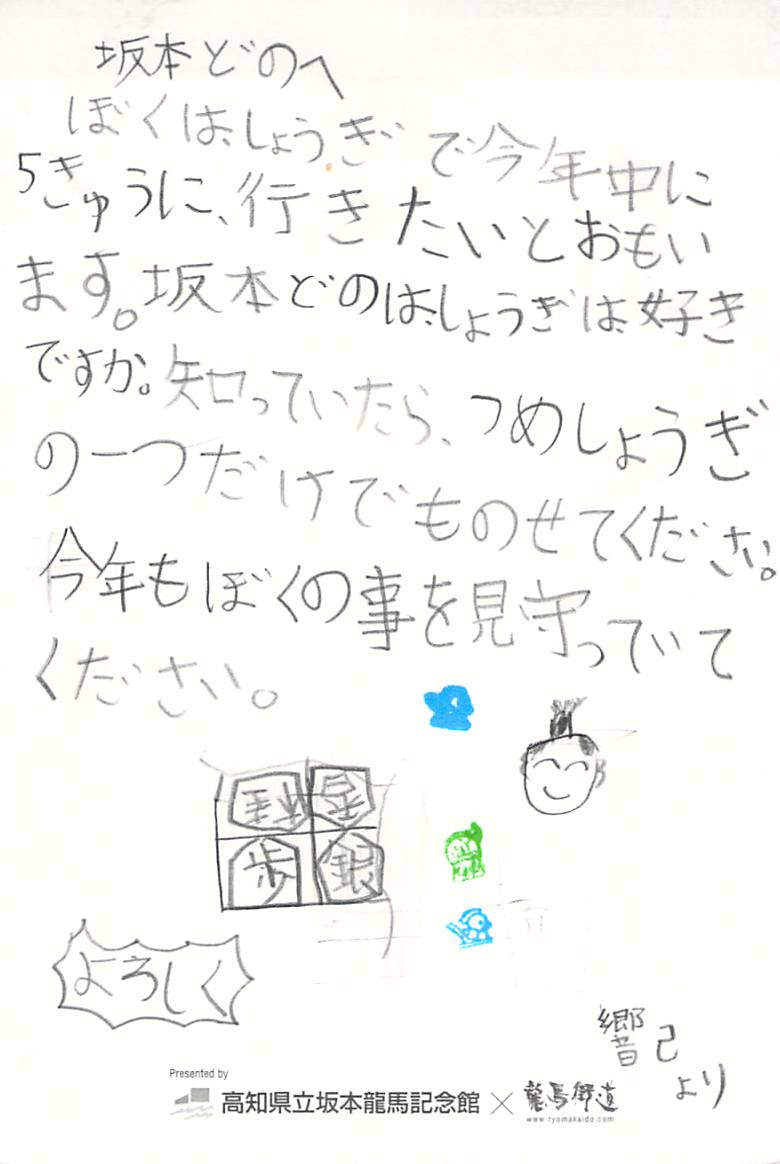 坂本どのへ
ぼくは、しょうぎで今年中に
5きゅうに、行きたいとおもい
ます。坂本どのは、しょうぎは、好き
ですか。知っていたら、つめしょうぎ
の一つだけでものせてください。
今年もぼくの事を見守っていて
ください。
金
歩 銀
よろしく
響己
より
Presented by
高知県立坂本龍馬記念館 × 龍馬街道
www.ryomakaido.com